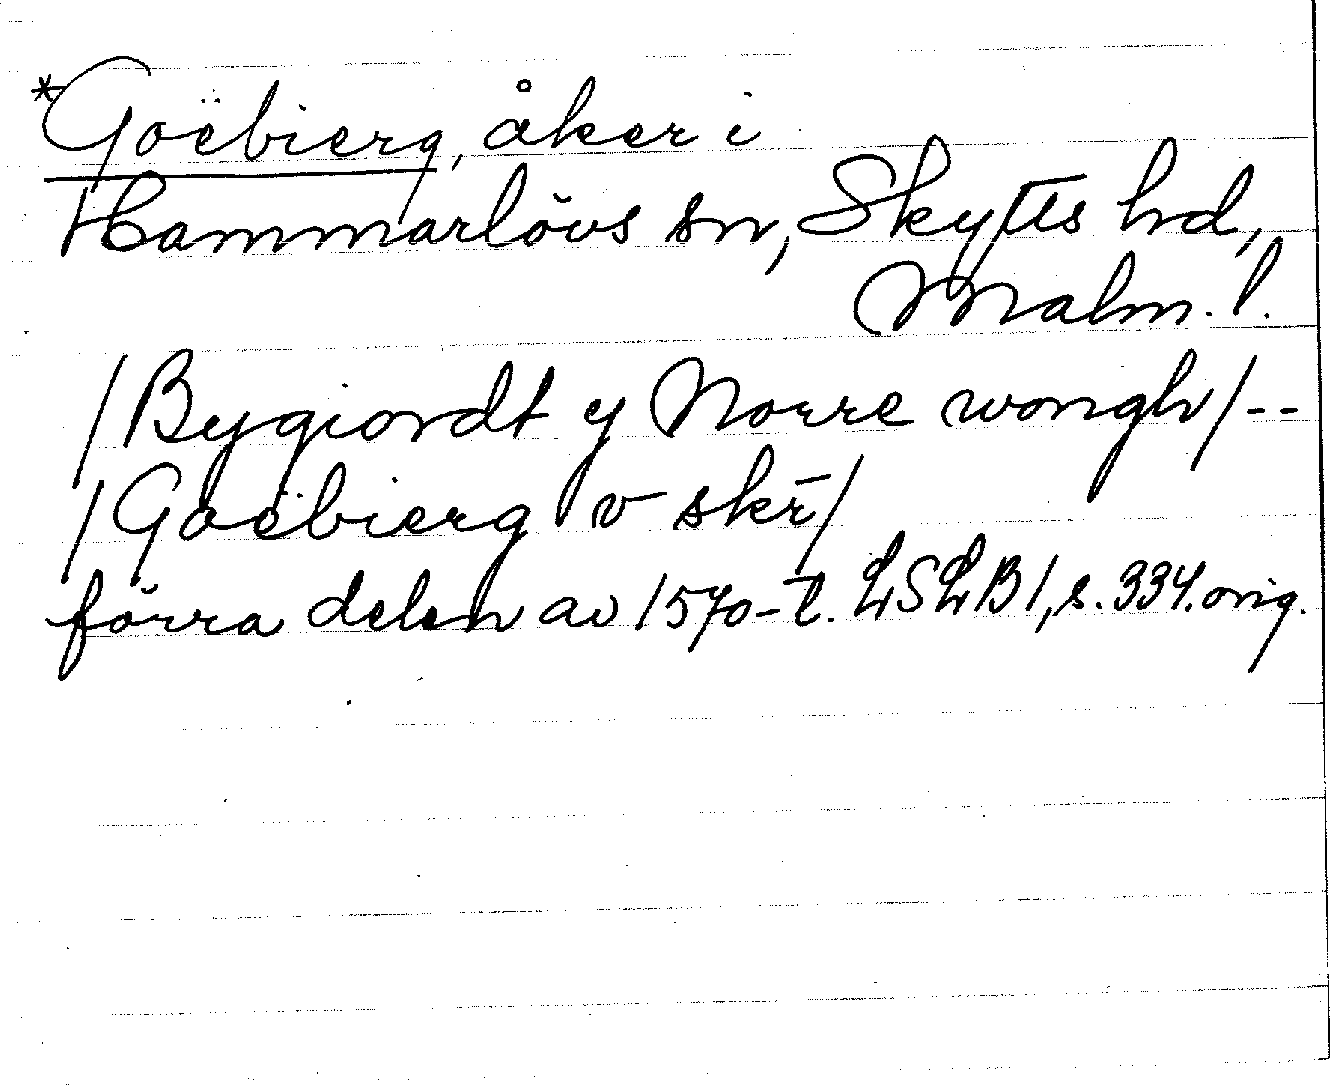 *Goëbierg, åker i
Hammarlövs sn, Skytts hd,
Malm. l.
/Bygiordt y Norre wongh/--
/Goëbierg v skr̄/
förra delen av 1570-t. LSLB1, s. 334. orig.